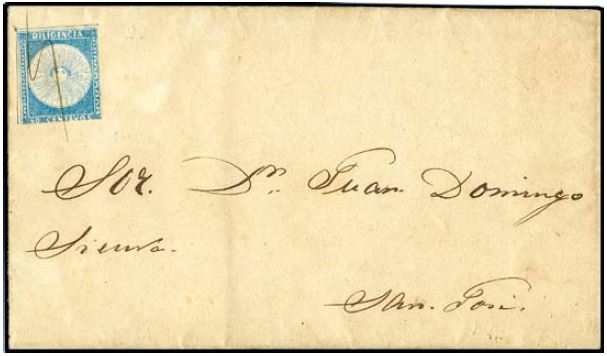 DILIGENCIA
60 CENTAVOS
Sor. Dn. Juan Domingo
San José.